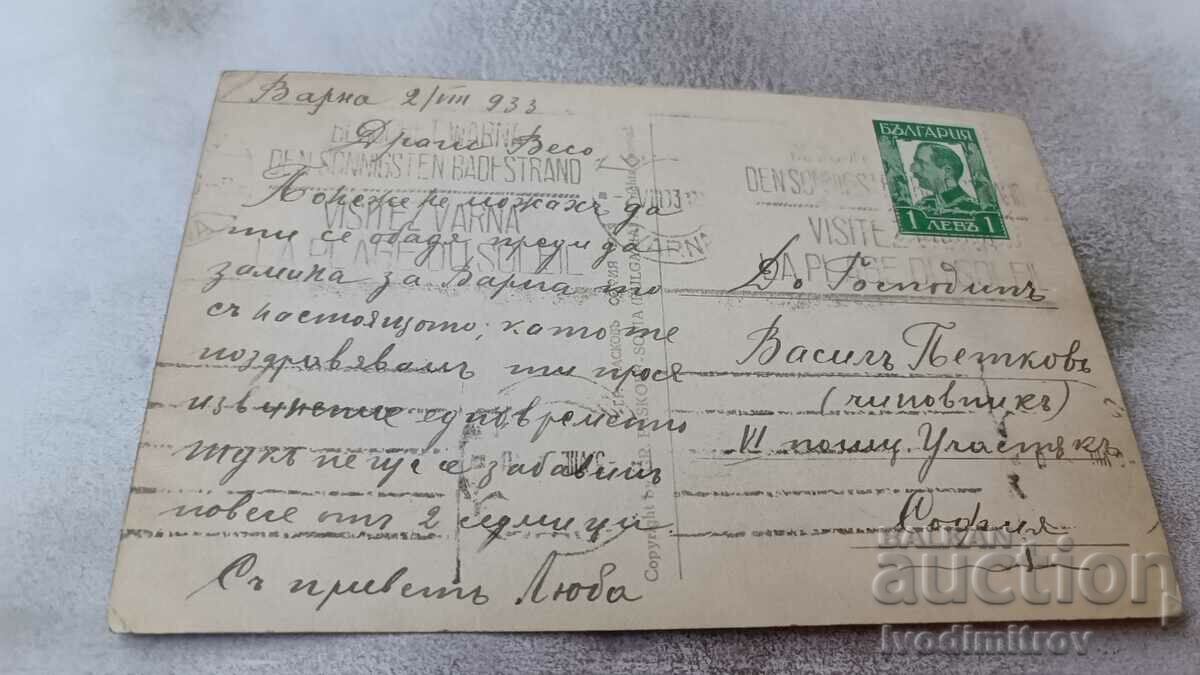 Варна 2/VIII 933
Драги Весо
Понеже не можахъ да
ти се обадя преди да
замина за Варна то
съ настоящото, като те
поздравявамъ ти прося
извинение едновременно
тукъ не ще се забавимъ
повече отъ 2 седмици.
Съ приветъ Люба
DEN SONNIGSTEN BADESTRAND
VISITEZ VARNA
LA PLAGE DU SOLEIL
VARNA
Copyright by GR. PASKOFF - SOFIA (BULGARIA)
БЪЛГАРИЯ
1 ЛЕВЪ 1
VISITEZ
LA PLAGE DU SOLEIL
До Господинъ
Василъ Петковъ
(чиновникъ)
VI полиц. Участъкъ
София
BALKAN
auction
ivodimitrov